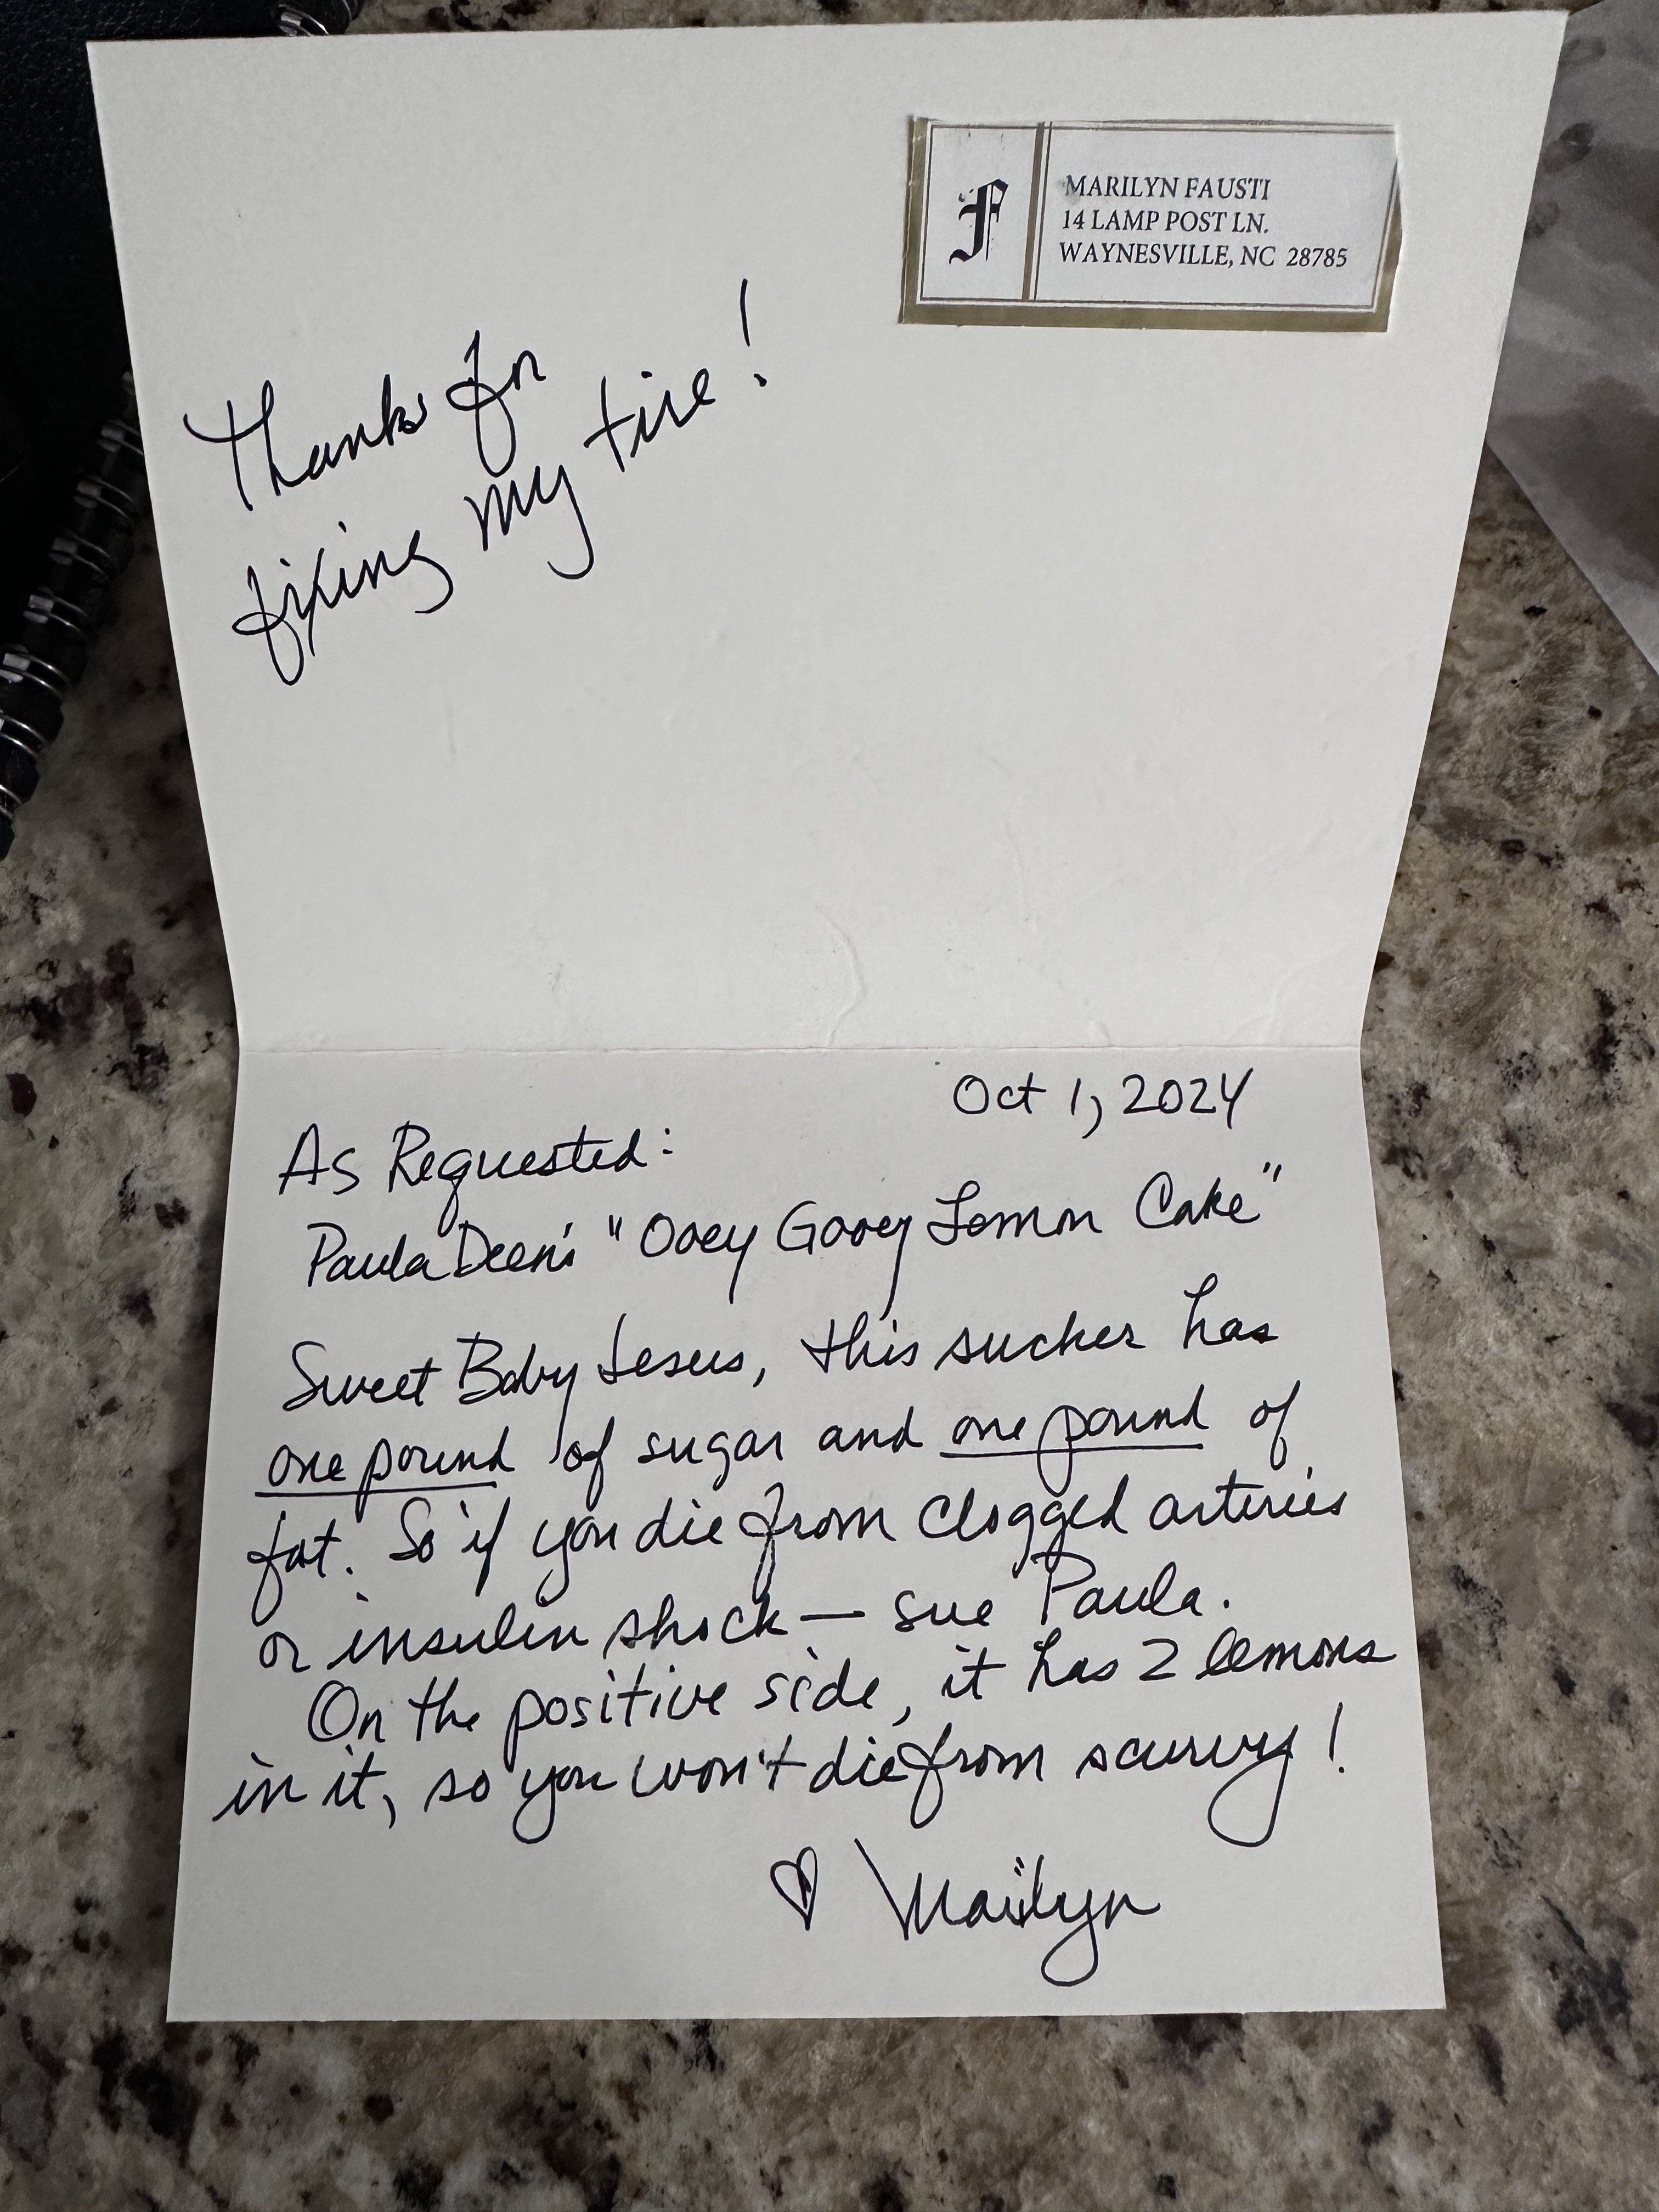 F
MARILYN FAUSTI
14 LAMP POST LN.
WAYNESVILLE, NC 28785
Thanks for
fixing my tire!
Oct 1, 2024
As Requested:
Paula Deen's "Ooey Gooey Lemon Cake"
Sweet Baby Jesus, this sucker has
one pound of sugar and one pound of
fat. So if you die from clogged arteries
or insulin shock — sue Paula.
On the positive side, it has 2 lemons
in it, so you won't die from scurvy!
♡ Marilyn